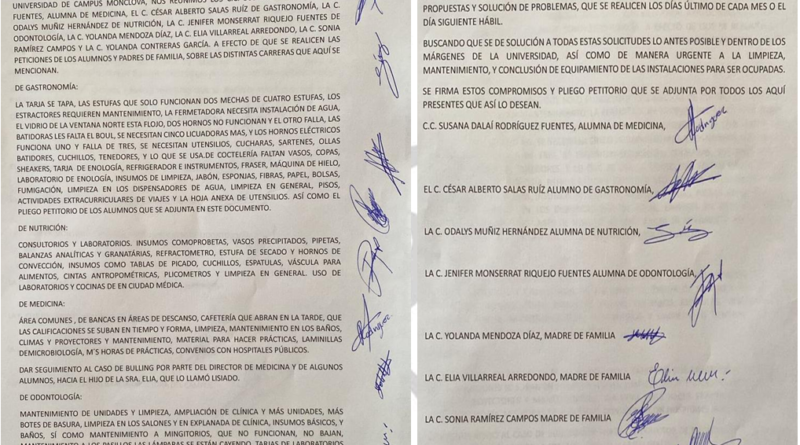 UNIVERSIDAD DE CAMPUS MONCLOVA, NOS REUNIMOS LOS
FUENTES, ALUMNA DE MEDICINA, EL C. CÉSAR ALBERTO SALAS RUÍZ DE GASTRONOMÍA, LA C.
ODALYS MUÑIZ HERNÁNDEZ DE NUTRICIÓN, LA C. JENIFER MONSERRAT RIQUEJO FUENTES DE
ODONTOLOGÍA, LA C. YOLANDA MENDOZA DÍAZ, LA C. ELIA VILLARREAL ARREDONDO, LA C. SONIA
RAMÍREZ CAMPOS Y LA C. YOLANDA CONTRERAS GARCÍA. A EFECTO DE QUE SE REALICEN LAS
PETICIONES DE LOS ALUMNOS Y PADRES DE FAMILIA, SOBRE LAS DISTINTAS CARRERAS QUE AQUÍ SE
MENCIONAN.
DE GASTRONOMÍA:
LA TARJA SE TAPA, LAS ESTUFAS QUE SOLO FUNCIONAN DOS MECHAS DE CUATRO ESTUFAS, LOS
ESTRACTORES REQUIEREN MANTENIMIENTO, LA FERMETADORA NECESITA INSTALACIÓN DE AGUA,
EL VIDRIO DE LA VENTANA NORTE ESTA FLOJO, DOS HORNOS NO FUNCIONAN Y EL OTRO FALLA, LAS
BATIDORAS LES FALTA EL BOUL, SE NECESITAN CINCO LICUADORAS MAS, Y LOS HORNOS ELÉCTRICOS
FUNCIONA UNO Y FALLA DE TRES, SE NECESITAN UTENSILIOS, CUCHARAS, SARTENES, OLLAS
BATIDORES, CUCHILLOS, TENEDORES, Y LO QUE SE USA.DE COCTELERÍA FALTAN VASOS, COPAS,
SHEAKERS, TARJA DE ENOLOGÍA, REFRIGERADOR E INSTRUMENTOS, FRASER, MÁQUINA DE HIELO,
LABORATORIO DE ENOLOGÍA, INSUMOS DE LIMPIEZA, JABÓN, ESPONJAS, FIBRAS, PAPEL, BOLSAS,
FUMIGACIÓN, LIMPIEZA EN LOS DISPENSADORES DE AGUA, LIMPIEZA EN GENERAL, PISOS,
ACTIVIDADES EXTRACURRICULARES DE VIAJES Y LA HOJA ANEXA DE UTENSILIOS. ASÍ COMO EL
PLIEGO PETITORIO DE LOS ALUMNOS QUE SE ADJUNTA EN ESTE DOCUMENTO.
DE NUTRICIÓN:
CONSULTORIOS Y LABORATORIOS. INSUMOS COMOPROBETAS, VASOS PRECIPITADOS, PIPETAS,
BALANZAS ANALÍTICAS Y GRANATÁRIAS, REFRACTOMETRO, ESTUFA DE SECADO Y HORNOS DE
CONVECCIÓN, INSUMOS COMO TABLAS DE PICADO, CUCHILLOS, ESPATULAS, VÁSCULA PARA
ALIMENTOS, CINTAS ANTROPOMÉTRICAS, PLICOMETROS Y LIMPIEZA EN GENERAL. USO DE
LABORATORIOS Y COCINAS DE EN CIUDAD MÉDICA.
DE MEDICINA:
ÁREA COMUNES , DE BANCAS EN ÁREAS DE DESCANSO, CAFETERÍA QUE ABRAN EN LA TARDE, QUE
LAS CALIFICACIONES SE SUBAN EN TIEMPO Y FORMA, LIMPIEZA, MANTENIMIENTO EN LOS BAÑOS,
CLIMAS Y PROYECTORES Y MANTENIMIENTO, MATERIAL PARA HACER PRÁCTICAS, LAMINILLAS
DEMICROBIOLOGÍA, M'S HORAS DE PRÁCTICAS, CONVENIOS CON HOSPITALES PÚBLICOS.
DAR SEGUIMIENTO AL CASO DE BULLING POR PARTE DEL DIRECTOR DE MEDICINA Y DE ALGUNOS
ALUMNOS, HACIA EL HIJO DE LA SRA. ELIA, QUE LO LLAMÓ LISIADO.
DE ODONTOLOGÍA:
MANTENIMIENTO DE UNIDADES Y LIMPIEZA, AMPLIACIÓN DE CLÍNICA Y MÁS UNIDADES, MÁS
BOTES DE BASURA, LIMPIEZA EN LOS SALONES Y EN EXPLANADA DE CLÍNICA, INSUMOS BÁSICOS, Y
BAÑOS, SÍ COMO MANTENIMIENTO A MINGITORIOS, QUE NO FUNCIONAN, NO BAJAN,
LAS LÁMPARAS SE ESTÁN CAYENDO, TARJAS DE LABORATORIOS
PROPUESTAS Y SOLUCIÓN DE PROBLEMAS, QUE SE REALICEN LOS DÍAS ÚLTIMO DE CADA MES O EL
DÍA SIGUIENTE HÁBIL.
BUSCANDO QUE SE DE SOLUCIÓN A TODAS ESTAS SOLICITUDES LO ANTES POSIBLE Y DENTRO DE LOS
MÁRGENES DE LA UNIVERSIDAD, ASÍ COMO DE MANERA URGENTE A LA LIMPIEZA,
MANTENIMIENTO, Y CONCLUSIÓN DE EQUIPAMIENTO DE LAS INSTALACIONES PARA SER OCUPADAS.
SE FIRMA ESTOS COMPROMISOS Y PLIEGO PETITORIO QUE SE ADJUNTA POR TODOS LOS AQUÍ
PRESENTES QUE ASÍ LO DESEAN.
C.C. SUSANA DALAÍ RODRÍGUEZ FUENTES, ALUMNA DE MEDICINA,
EL C. CÉSAR ALBERTO SALAS RUÍZ ALUMNO DE GASTRONOMÍA,
LA C. ODALYS MUÑIZ HERNÁNDEZ ALUMNA DE NUTRICIÓN,
LA C. JENIFER MONSERRAT RIQUEJO FUENTES ALUMNA DE ODONTOLOGÍA,
LA C. YOLANDA MENDOZA DÍAZ, MADRE DE FAMILIA
LA C. ELIA VILLARREAL ARREDONDO, MADRE DE FAMILIA
LA C. SONIA RAMÍREZ CAMPOS MADRE DE FAMILIA